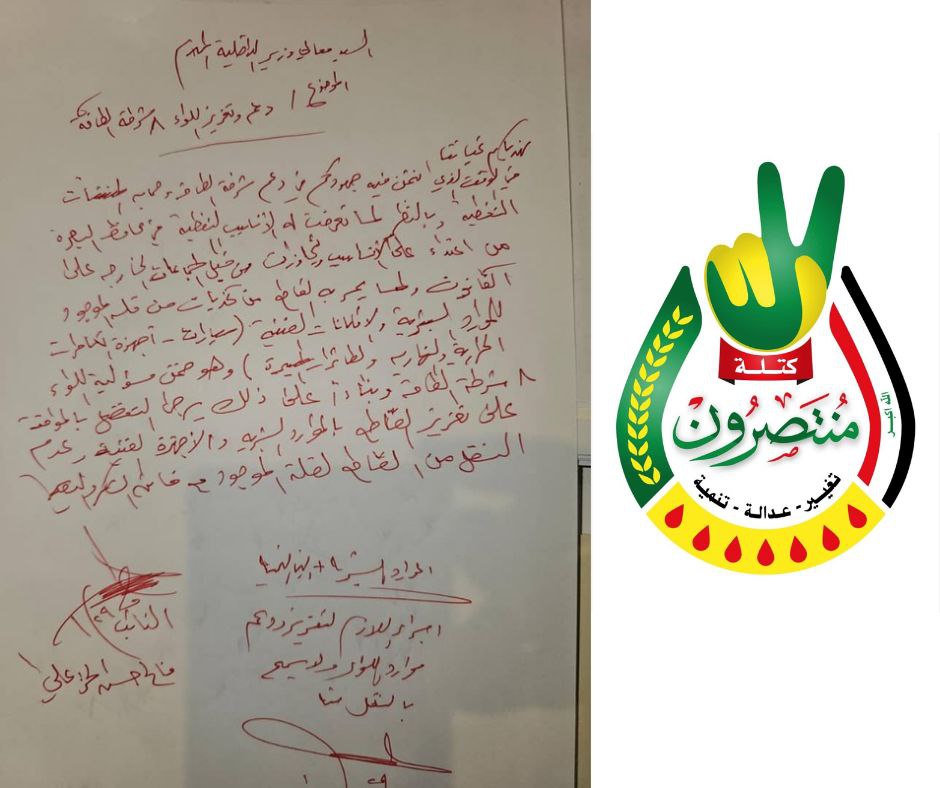 السيد معالي وزير الداخلية المحترم
الموضوع / دعم وتعزيز اللواء ٨ شرطة الطاقة
نهديكم تحياتنا
في الوقت الذي نثمن فيه جهودكم في دعم شرطة الطاقة وحماية المنشآت
النفطية وبالنظر لما تعرضت له الأنابيب النفطية في محافظة البصرة
من اعتداء على الأنابيب وتجاوزات من قبل الجماعات الخارجة على
القانون ولما يمر به القاطع من تحديات من قلة الموجود و
الموارد البشرية والامكانات الفنية (سيارات - اجهزة الكامرات
الحرارية والنهارية والطائرات المسيرة) وهو ضمن مسؤولية اللواء
٨ شرطة الطاقة وبناءاً على ذلك يرجى التفضل بالموافقة
على تعزيز القاطع بالموارد البشرية والأجهزة الفنية وعدم
النقل من القاطع لقلة الموجود
النائب
فالح حسن الخزعلي
الموارد البشرية
اجراء اللازم لتعزيز ودعم
موارد اللواء ولا يسمح
بالنقل منه
٢٩
كتلة
مُنتصرون
تغيير - عدالة - تنمية
الله اكبر